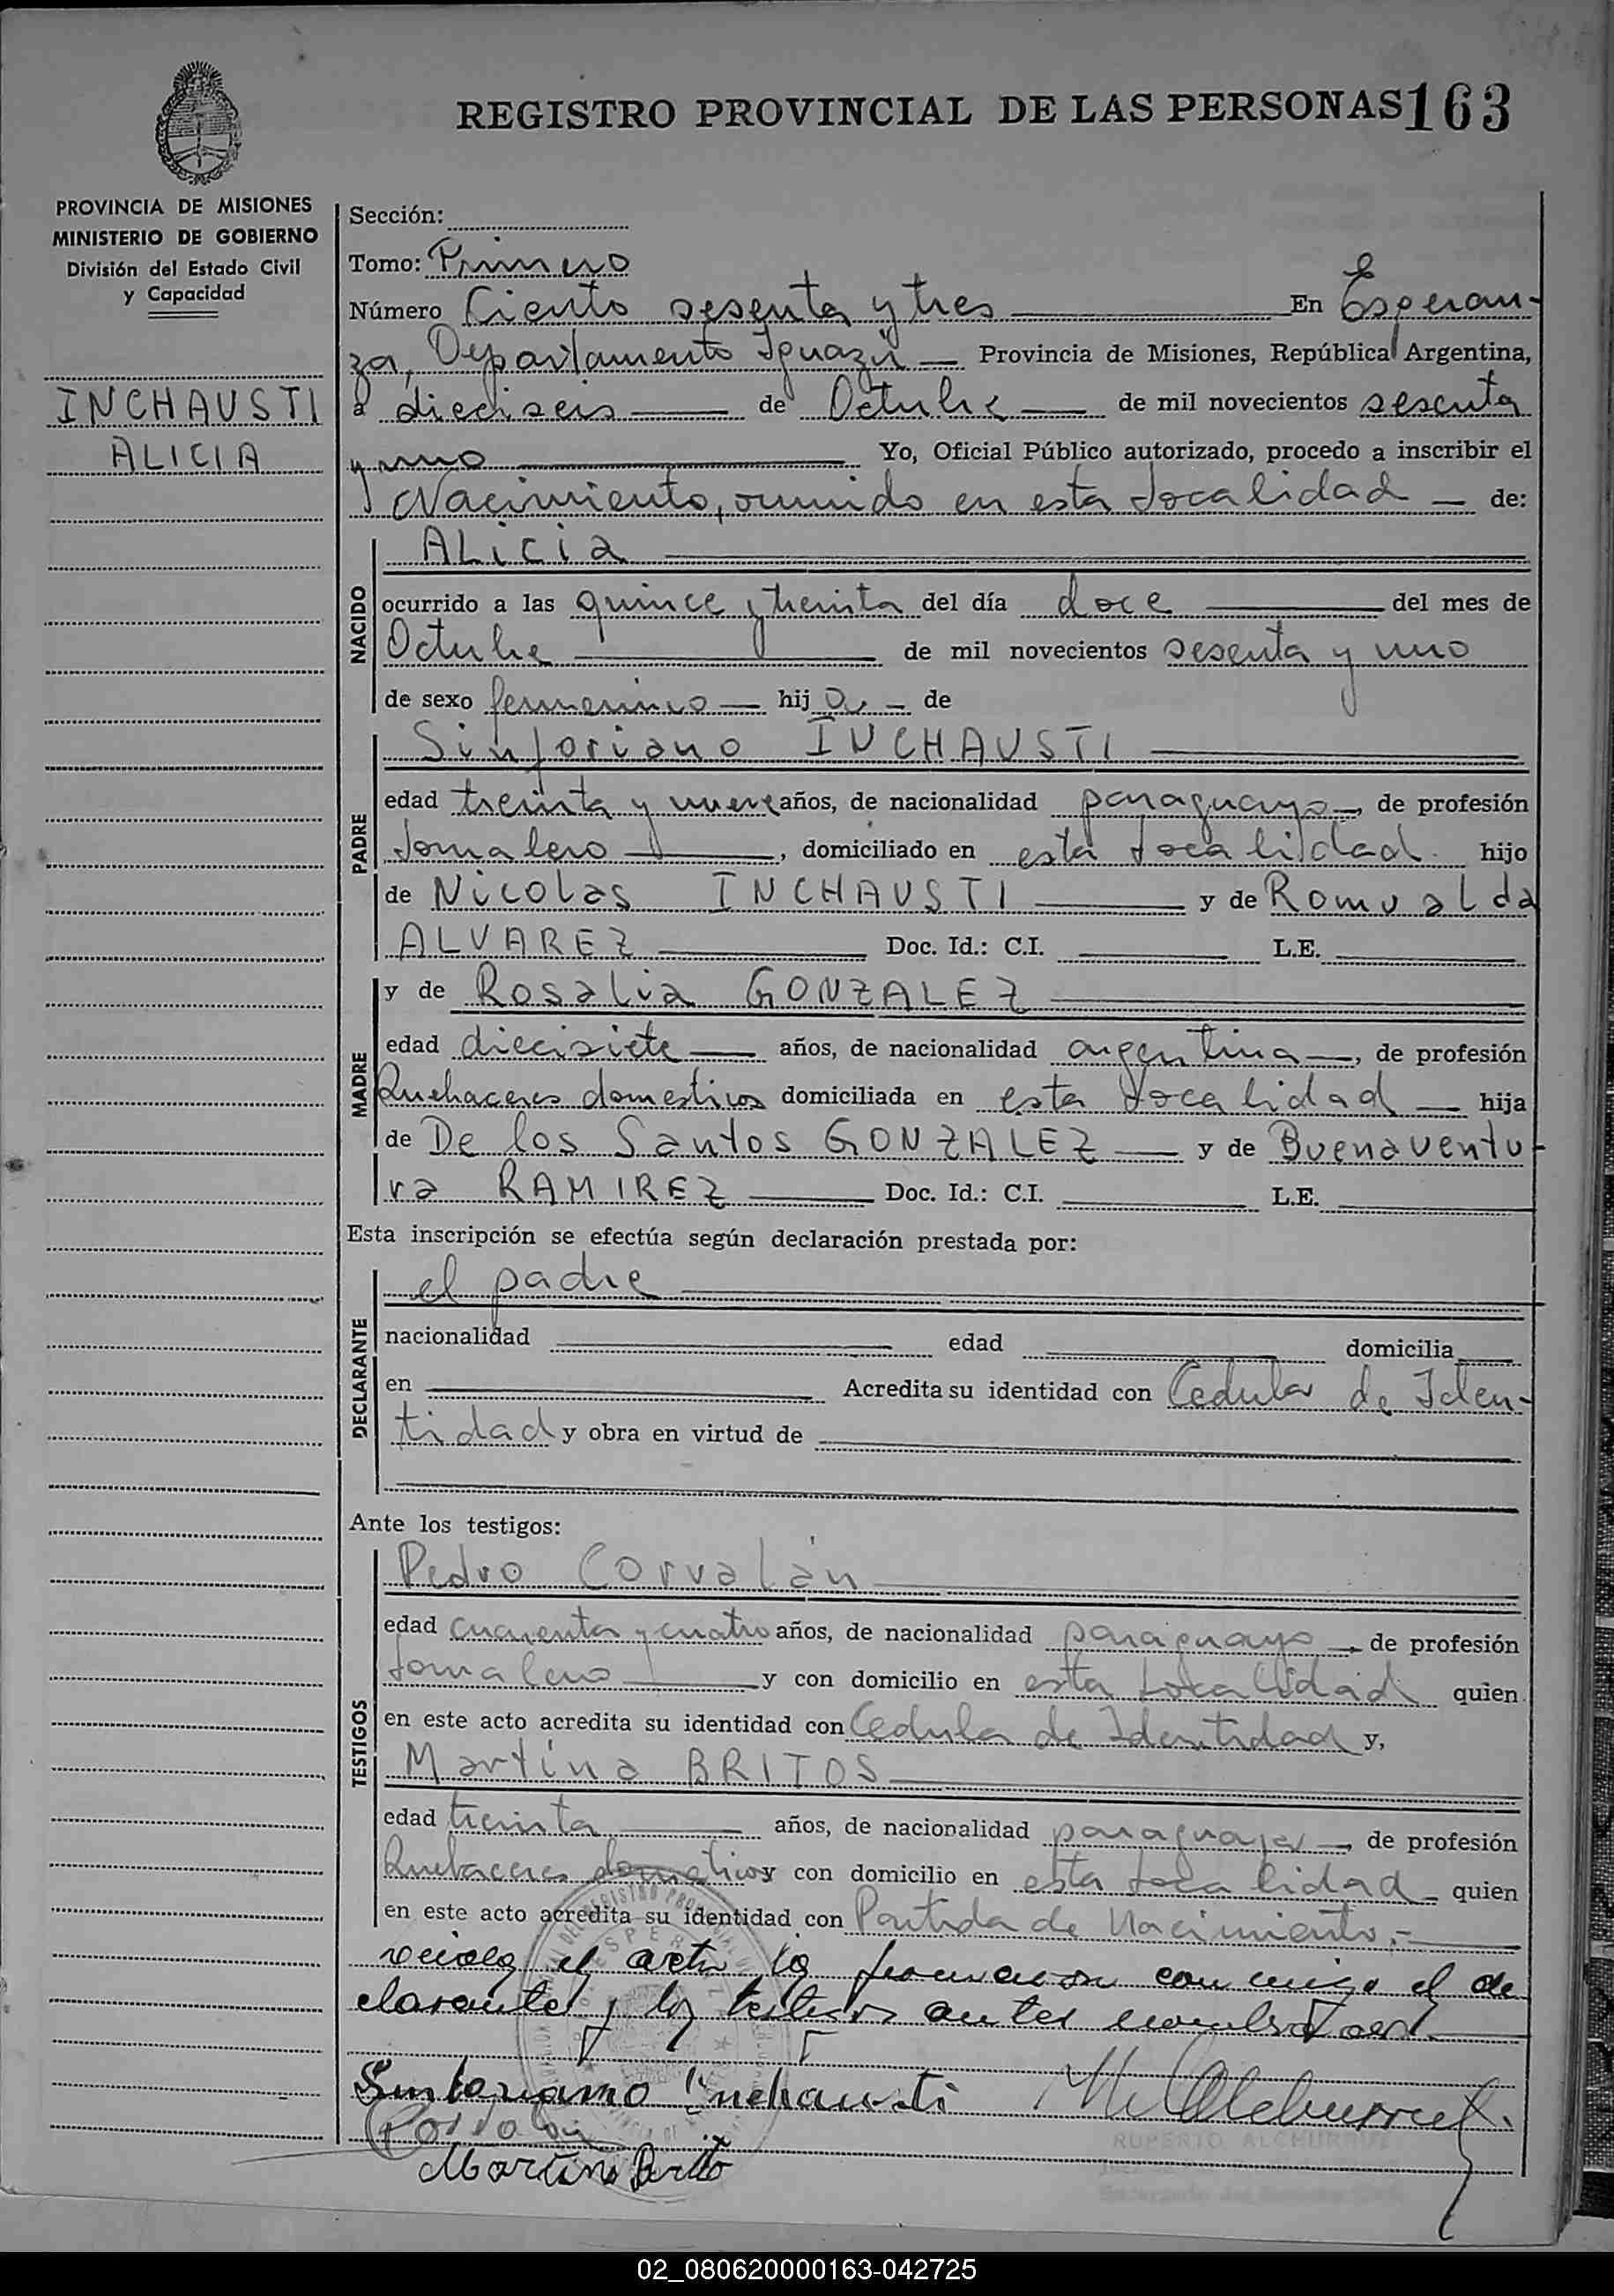 REGISTRO PROVINCIAL DE LAS PERSONAS 163
PROVINCIA DE MISIONES
MINISTERIO DE GOBIERNO
División del Estado Civil
y Capacidad
INCHAUSTI
ALICIA
Sección:
Tomo: Primero
Número Ciento sesenta y tres En Esperan-
za, Departamento Iguazú Provincia de Misiones, República Argentina,
a dieciseis de Octubre de mil novecientos sesenta
y uno Yo, Oficial Público autorizado, procedo a inscribir el
Nacimiento, ocurrido en esta localidad de:
NACIDO
ALICIA
ocurrido a las quince y treinta del día doce del mes de
Octubre de mil novecientos sesenta y uno
de sexo femenino hija de
PADRE
Sinforiano INCHAUSTI
edad treinta y nueve años, de nacionalidad paraguayo, de profesión
Jornalero, domiciliado en esta localidad hijo
de Nicolas INCHAUSTI y de Romualda
ALVAREZ Doc. Id.: C.I. L.E.
MADRE
y de Rosalia GONZALEZ
edad diecisiete años, de nacionalidad argentina, de profesión
Quehaceres domesticos domiciliada en esta localidad hija
de De los Santos GONZALEZ y de Buenaventu-
ra RAMIREZ Doc. Id.: C.I. L.E.
Esta inscripción se efectúa según declaración prestada por:
DECLARANTE
el padre
nacionalidad edad domicilia
en Acredita su identidad con Cedula de Iden-
tidad y obra en virtud de
Ante los testigos:
TESTIGOS
Pedro Corvalán
edad cuarenta y cuatro años, de nacionalidad paraguayo, de profesión
Jornalero y con domicilio en esta localidad quien
en este acto acredita su identidad con Cedula de Identidad y,
Martina BRITOS
edad treinta años, de nacionalidad paraguaya, de profesión
Quehaceres domesticos y con domicilio en esta localidad quien
en este acto acredita su identidad con Partida de Nacimiento.-
el acta la firmaron conmigo el de
clarante y los testigos antes nombrados.
Sinforiano Inchausti
Martina Brito
RUPERTO ALCHURRUT
02_080620000163-042725